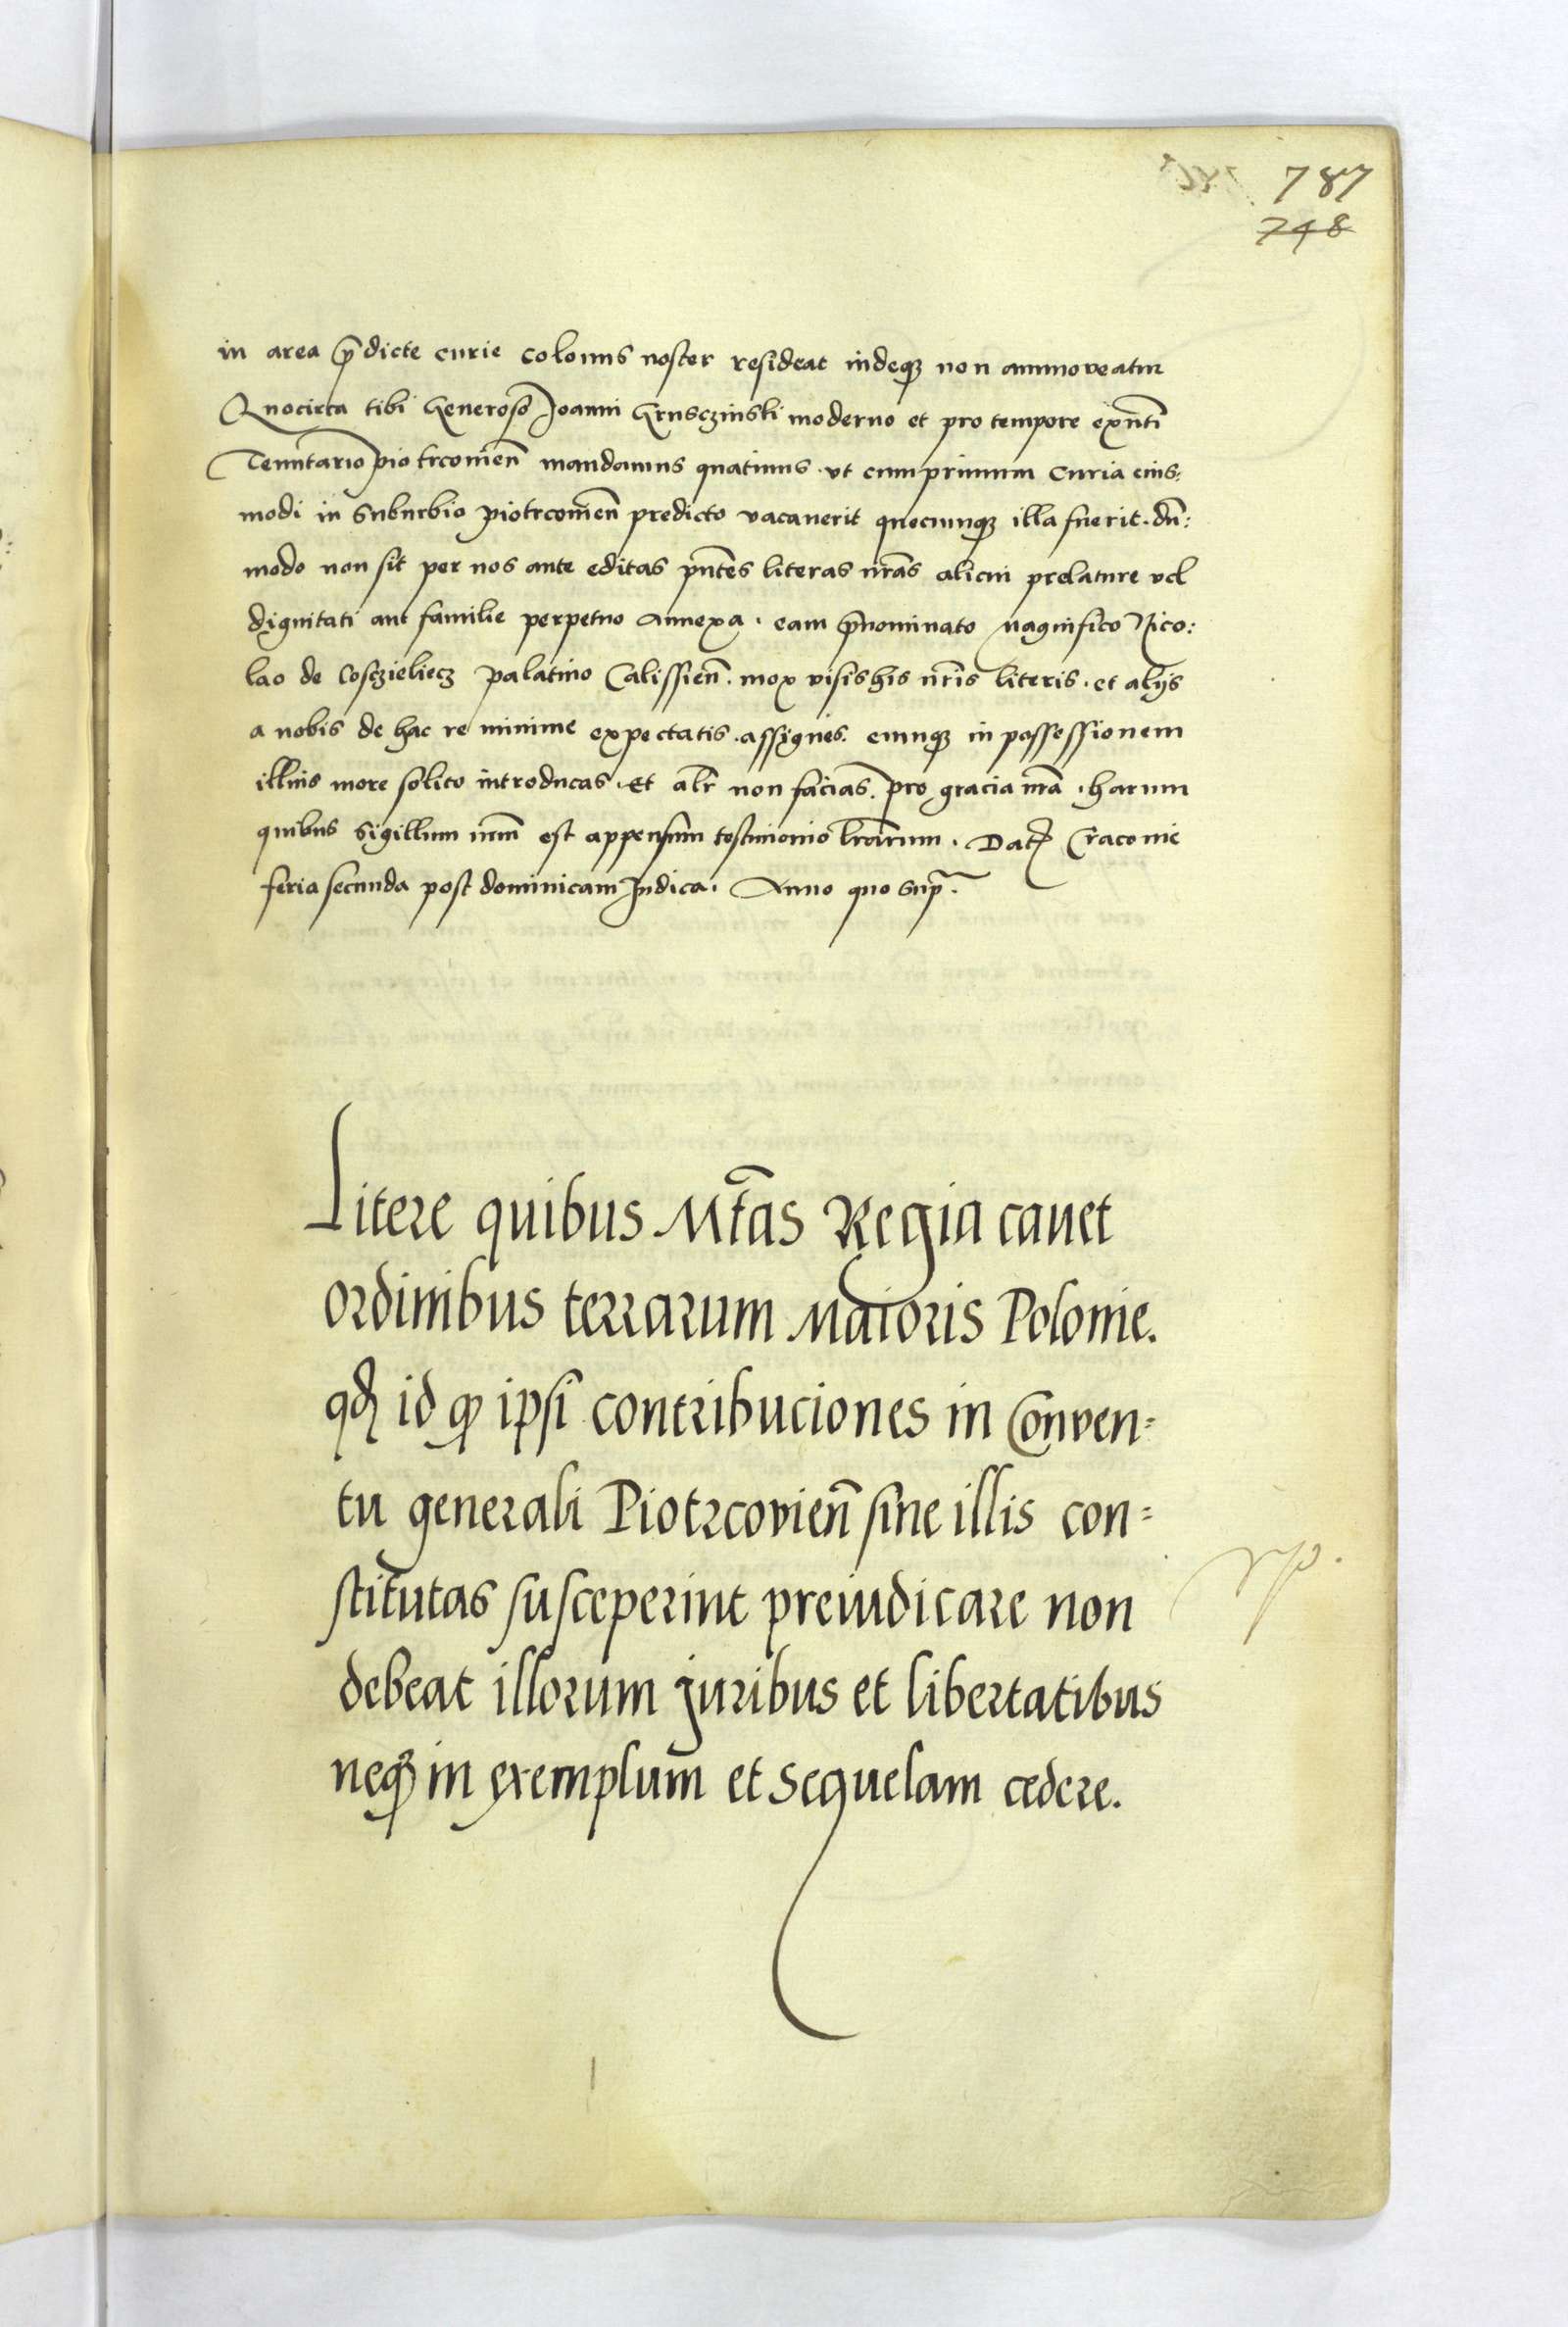 787
748
in area p̄dicte curie colonus noster resideat indeqꝫ non ammoveatur
Quocirca tibi Generoso Joanni Grusczinski moderno et pro tempore exn̄ti
Tenutario piotrcovien̄ mandamus quatinus . ut cum primum curia eius:
modi in suburbio piotrcovien̄ predicto vacaverit quecunqꝫ illa fuerit . du̅:
modo non sit per nos ante editas pn̄tes literas nr̄as alicui prelature vel
dignitati aut familie perpetuo annexa . eam p̄nominato Magnifico Nico:
lao de Cosczieliecz palatino Calissien̄ . mox visis his nr̄is literis . et alijs
a nobis de hac re minime expectatis . assignes . eumqꝫ in possessionem
illius more solito introducas . et alr̄ non facias . pro gracia nr̄a . harum
quibus sigillum nr̄m est appensum testimonio lr̄arum . Datꝫ Cracovie
feria secunda post dominicam Judica . Anno quo sup̄.
Litere quibus M̄tas Regia cavet
ordinibus terrarum Maioris Polonie.
qđ id qꝫ ipsi contribuciones in Conven=
tu generali Piotrcovien̄ sine illis con=
stitutas susceperint preiudicare non
debeat illorum juribus et libertatibus
neqꝫ in exemplum et sequelam cedere.